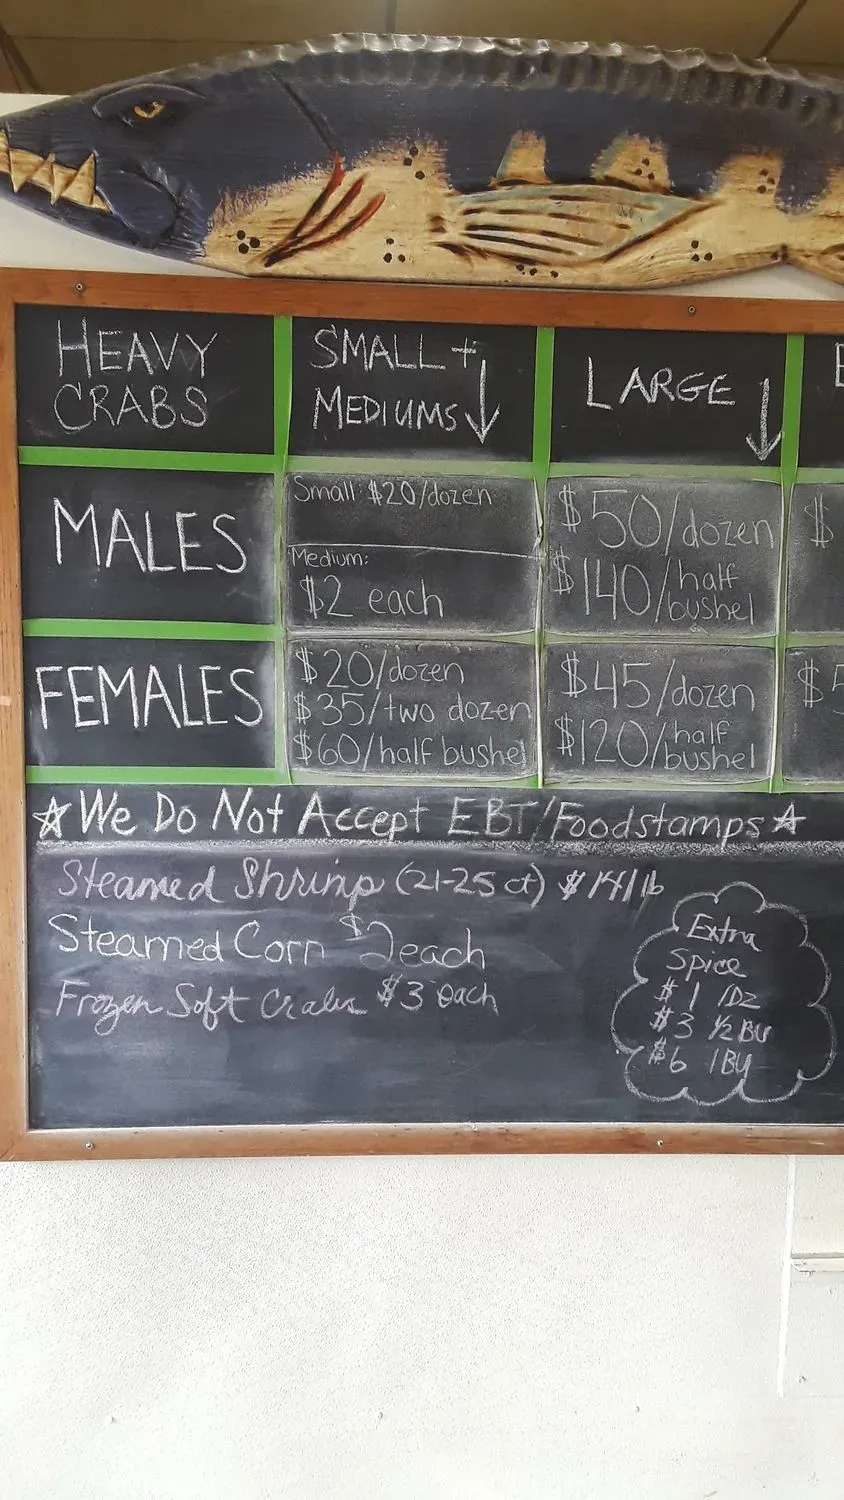 HEAVY
CRABS
SMALL +
MEDIUMS
LARGE
MALES
Small: $20/dozen
Medium:
$2 each
$50/dozen
$140/half
bushel
$
FEMALES
$20/dozen
$35/two dozen
$60/half bushel
$45/dozen
$120/half
bushel
$5
☆We Do Not Accept EBT/Foodstamps☆
Steamed Shrimp (21-25 ct) $14/lb
Steamed Corn $2 each
Frozen Soft Crabs $3 each
Extra
Spice
$1 1DZ
$3 1/2 BU
$6 1BU